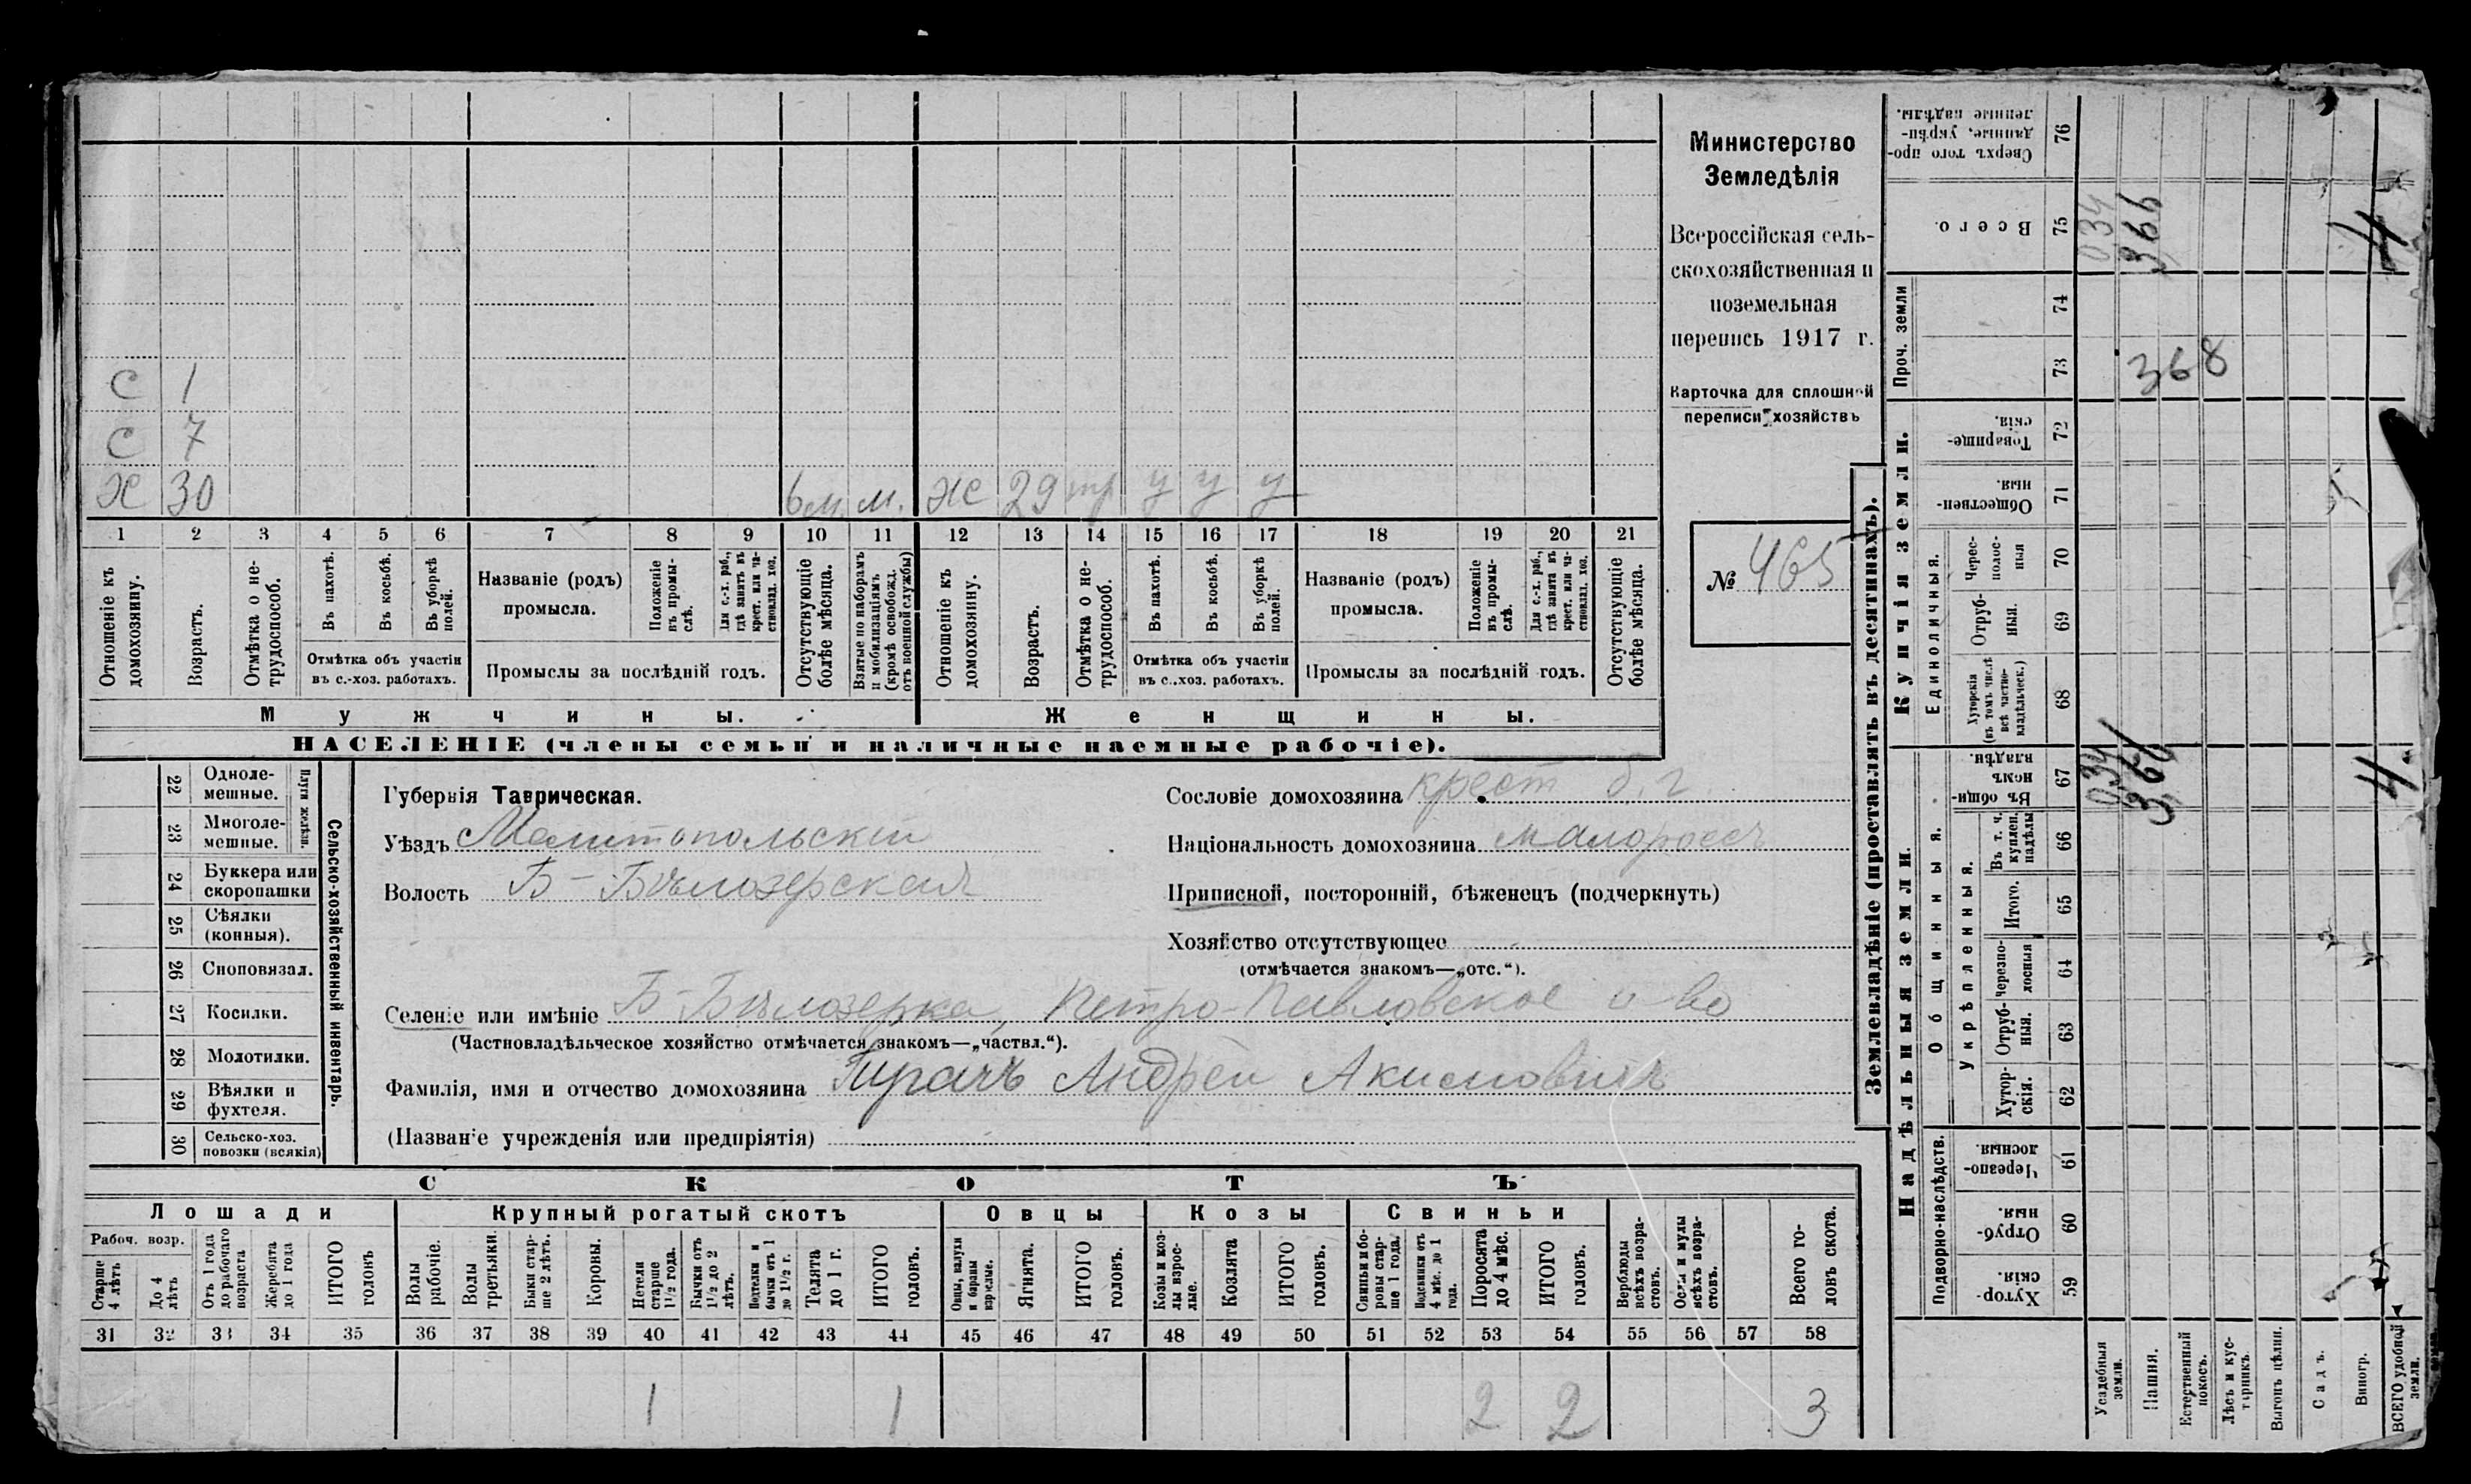 С 1
С 7
Х 30 6 м. м. Ж 29 тр у у у
1 2 3 4 5 6 7 8 9 10 11 12 13 14 15 16 17 18 19 20 21
Отношеніе къ домохозяину.
Возрастъ.
Отмѣтка о не-трудоспособ.
Въ пахотѣ.
Въ косьбѣ.
Въ уборкѣ полей.
Отмѣтка объ участіи
въ с.-хоз. работахъ.
Названіе (родъ)
промысла.
Положеніе въ промы-слѣ.
Для с.-х. раб., гдѣ занятъ въ крест. или ча-стновлад. хоз.
Промыслы за послѣдній годъ.
Отсутствующіе болѣе мѣсяца.
Взятые по наборамъ и мобилизаціямъ (кромѣ освобожд. отъ военной службы)
Отношеніе къ домохозяину.
Возрастъ.
Отмѣтка о не-трудоспособ.
Въ пахотѣ.
Въ косьбѣ.
Въ уборкѣ полей.
Отмѣтка объ участіи
въ с.-хоз. работахъ.
Названіе (родъ)
промысла.
Положеніе въ промы-слѣ.
Для с.-х. раб., гдѣ занята въ крест. или ча-стновлад. хоз.
Промыслы за послѣдній годъ.
Отсутствующіе болѣе мѣсяца.
Мужчины.
Женщины.
НАСЕЛЕНІЕ (члены семьи и наличные наемные рабочіе).
Министерство
Земледѣлія
Всероссійская сель-
скохозяйственная и
поземельная
перепись 1917 г.
Карточка для сплошной
переписи хозяйствъ
№ 465
22 Одноле-мешные.
23 Многоле-мешные.
Плуги желѣзн.
24 Буккера или скоропашки
25 Сѣялки (конныя).
26 Сноповязал.
27 Косилки.
28 Молотилки.
29 Вѣялки и фухтеля.
30 Сельско-хоз. повозки (всякія)
Сельско-хозяйственный инвентарь.
Губернія Таврическая.
Уѣздъ Мелитопольскій
Волость Б-Бѣлозерская
Сословіе домохозяина крест б. г
Національность домохозяина малороссъ
Приписной, посторонній, бѣженецъ (подчеркнуть)
Хозяйство отсутствующее
(отмѣчается знакомъ—„отс.“).
Селеніе или имѣніе Б-Бѣлозерка, Петро-Павловское о-во
(Частновладѣльческое хозяйство отмѣчается знакомъ—„частвл.“).
Фамилія, имя и отчество домохозяина Андрей Акимовичъ
(Названіе учрежденія или предпріятія)
СКОТЪ
Лошади
Крупный рогатый скотъ
Овцы
Козы
Свиньи
Рабоч. возр.
Старше 4 лѣтъ
До 4 лѣтъ
Отъ 1 года до рабочаго возраста
Жеребята до 1 года
ИТОГО головъ
Волы рабочіе.
Волы третьяки.
Быки стар-ше 2 лѣтъ.
Коровы.
Нетели старше 1½ года.
Бычки отъ 1½ до 2 лѣтъ.
Подтелки и бычки отъ 1 до 1½ г.
Телята до 1 г.
ИТОГО головъ.
Овцы, валухи и бараны взрослые.
Ягнята.
ИТОГО головъ.
Козы и коз-лы взрос-лые.
Козлята
ИТОГО головъ.
Свиньи и бо-ровы стар-ше 1 года.
Подсвинки отъ 4 мѣс. до 1 года.
Поросята до 4 мѣс.
ИТОГО головъ.
Верблюды всѣхъ возра-стовъ.
Ослы и мулы всѣхъ возра-стовъ.
Всего го-ловъ скота.
31 32 33 34 35 36 37 38 39 40 41 42 43 44 45 46 47 48 49 50 51 52 53 54 55 56 57 58
1 1 2 2 3
Землевладѣніе (проставлять въ десятинахъ).
Купчія земли.
Надѣльныя земли.
Сверхъ того про-данные, укрѣп-ленные надѣлы. 76
Всего. 75 0,34 3,66 4
Проч. земли
74
73 368
Товарище-скія. 72
Обществен-ныя. 71
Единоличныя.
Черес-полос-ныя 70
Отруб-ныя. 69
Хуторскія (въ томъ числѣ всѣ частно-владѣльческ.) 68
Общинныя.
Въ общи-номъ владѣн. 67 0,34 3,66 4
Укрѣпленныя.
Въ т. ч. куплен. надѣлы 66
Итого. 65
Черезпо-лосныя 64
Отруб-ныя. 63
Хутор-скія. 62
Подворно-наслѣдств.
Черезпо-лосныя 61
Отруб-ныя. 60
Хутор-скія. 59
Усадебныя земли.
Пашня.
Естественный покосъ.
Лѣсъ и кус-тарникъ.
Выгонъ цѣлин.
Садъ.
Виногр.
ВСЕГО удобной земли.